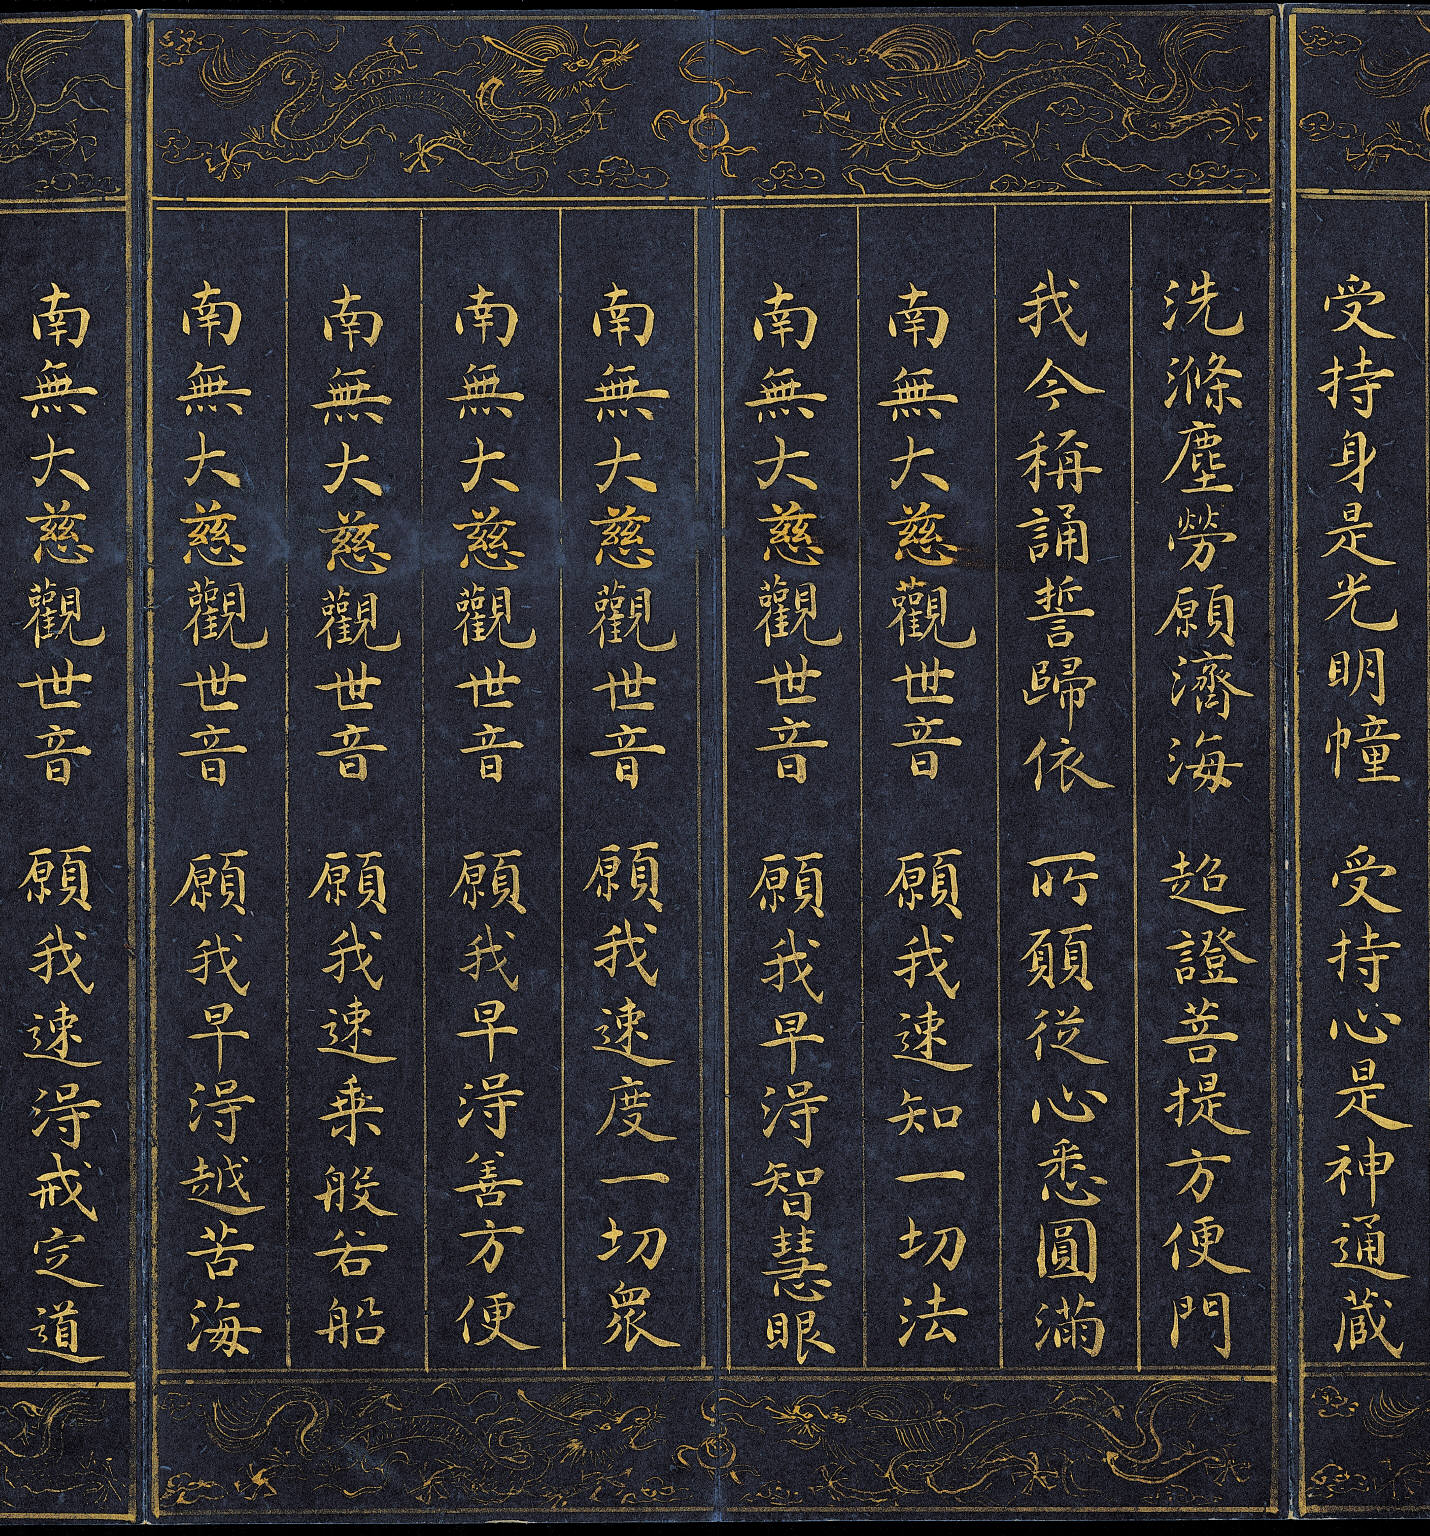 受持身是光明幢　受持心是神通蔵
洗滌塵勞願濟海　超證菩提方便門
我今稱誦誓歸依　所願從心悉圓滿
南無大慈觀世音　願我速知一切法
南無大慈觀世音　願我早淂智慧眼
南無大慈觀世音　願我速度一切衆
南無大慈觀世音　願我早淂善方便
南無大慈觀世音　願我速乗般若船
南無大慈觀世音　願我早淂越苦海
南無大慈觀世音　願我速淂戒定道